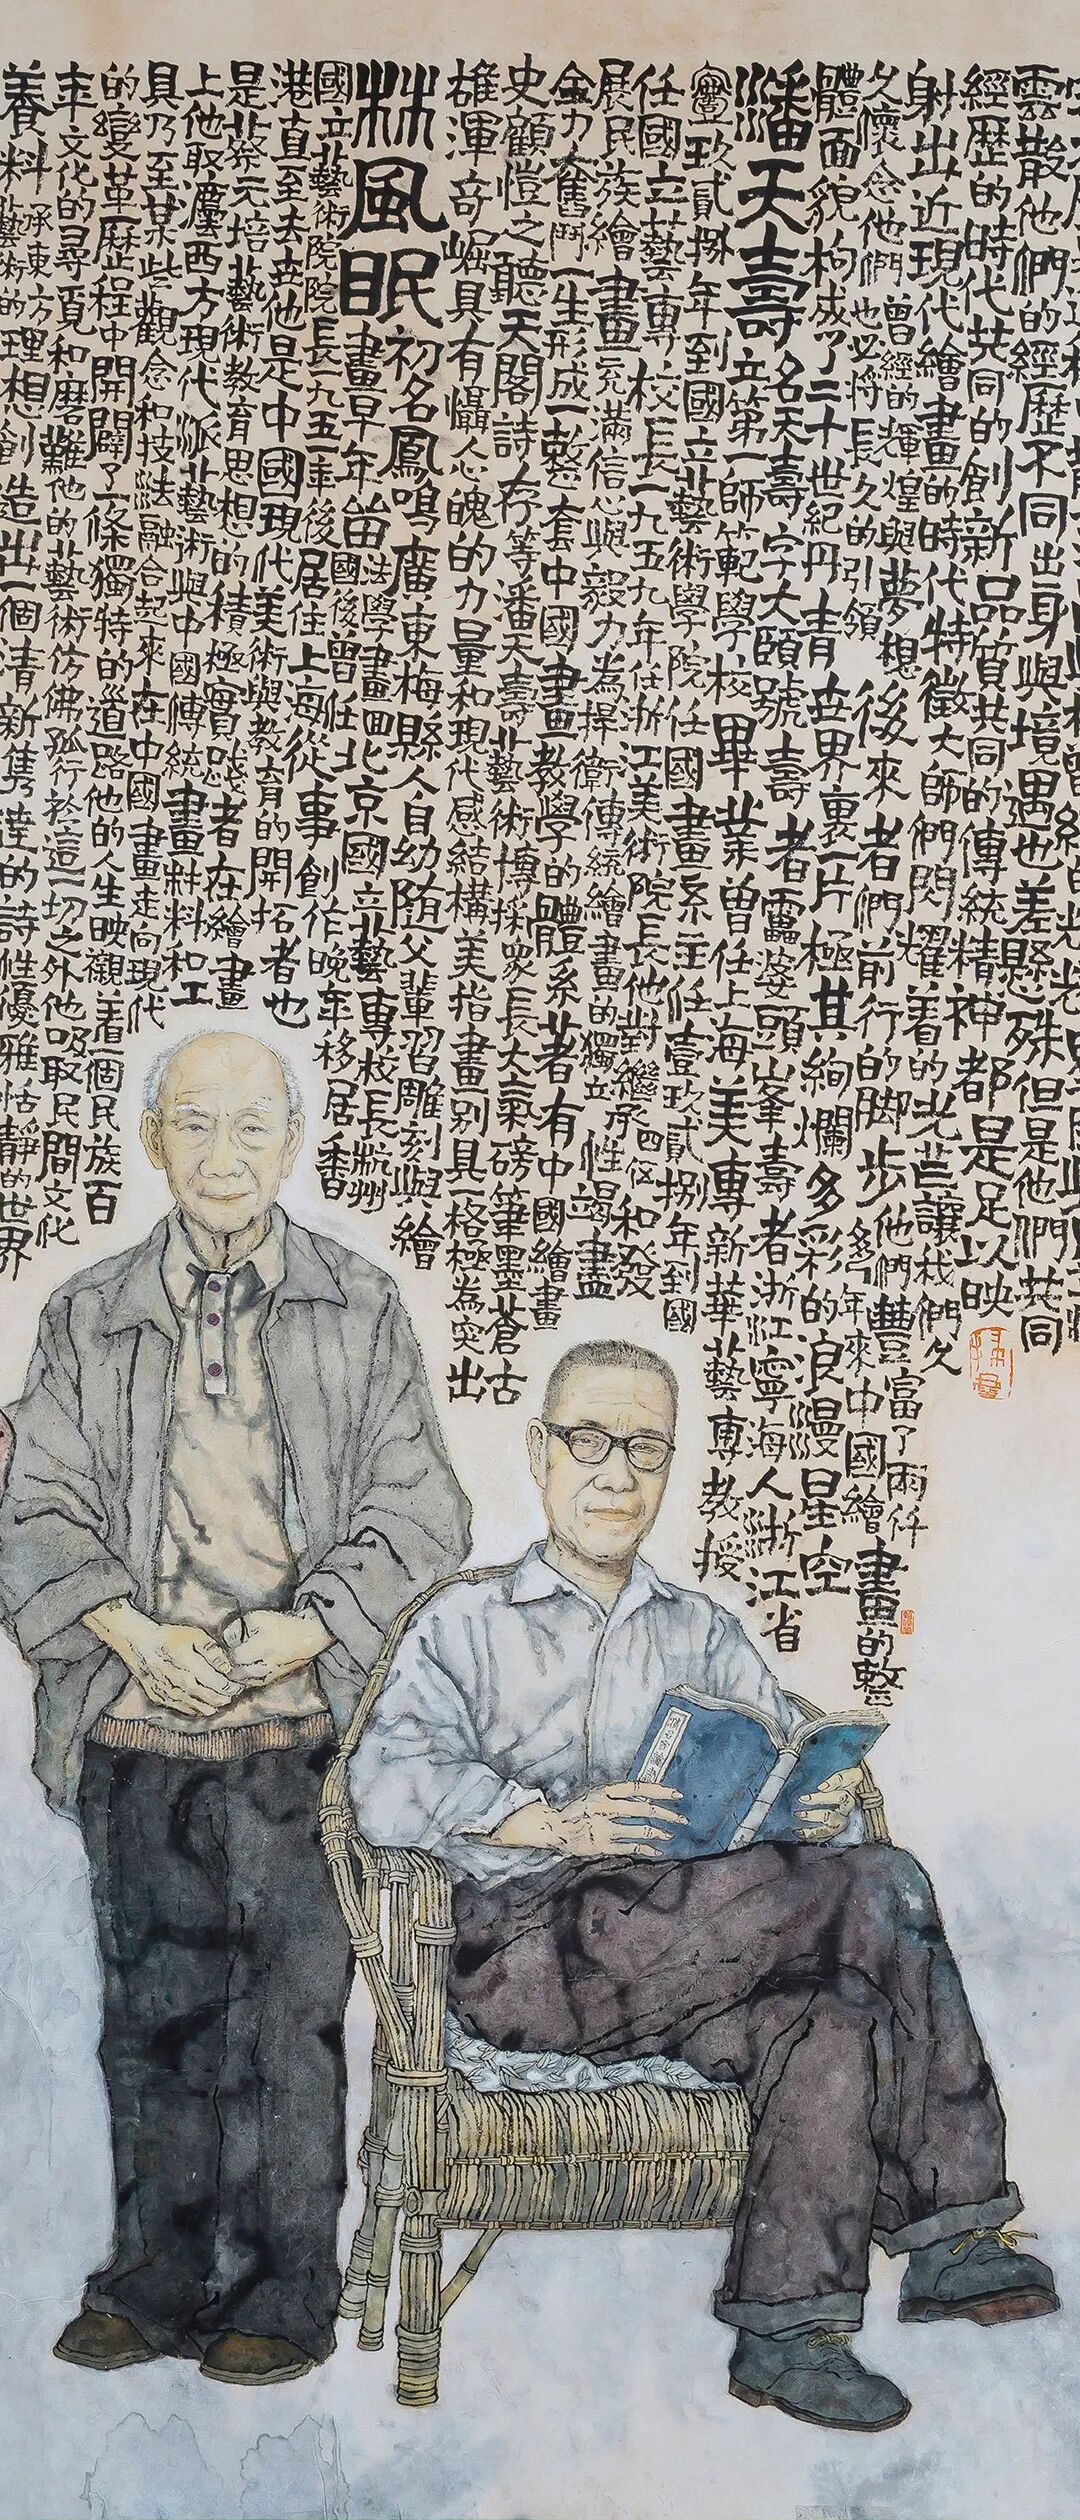 雲散他們的經歷不同出身與境遇也差懸殊但是他們共同
經歷的時代共同的創新品質共同的傳統精神都是足以映
射出近現代繪畫的時代特徵大師們閃耀着的光芒讓我們久
久懷念他們曾經的輝煌與夢想
他們也必將長久的引領後來者們前行的脚步他們豐富了兩仟
年來中國繪畫的整
體面貌构成了二十世紀丹青世界裏一片極其絢爛多彩的浪漫星空
潘天壽名天壽字大頤號壽者雷婆頭峯壽者浙江寧海人浙江省
立第一師範學校畢業曾任上海美專新華藝專教授
壹玖貳捌年到國立藝術學院任國畫系主任壹玖貳捌年到國
任國立藝專校長一九五九年任浙江美術院長他對繼承和發
展民族繪畫充滿信心與毅力為捍衛傳統繪畫的獨立性竭盡
全力奮鬥一生形成一整套中國畫教學的體系著有中國繪畫
史顧愷之聽天閣詩存等潘天壽藝術博採眾長大氣磅筆墨蒼古
雄渾奇崛具有懾人心魄的力量和現代感結構美指畫別具一格極為突出
林風眠初名鳳鳴廣東梅縣人自幼隨父輩習雕刻與繪
畫早年留法學畫回國後曾任北京國立藝專校長杭州
國立藝術院院長一九五一年後居住上海從事創作晚年移居香
港直至去世他是中國現代美術與教育的開拓者也
是蔡元培藝術教育思想的積極實踐者在繪畫
上他取濃西方現代派藝術與中國傳統畫材料和工
具乃至某些觀念和技法融合起來在中國畫走向現代
的變革歷程中開闢了一條獨特的道路他的人生映襯着一個民族百
年文化的尋覓和磨難他的藝術仿佛孤行於這一切之外他吸取民間文化
養料承東方藝術的理想創造出一個清新隽逹的詩性優雅恬靜的世界